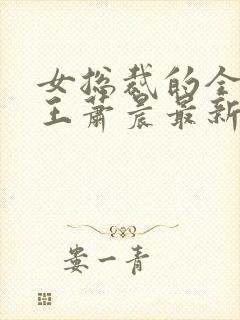 女总裁的全
王萧晨最新
娄一青